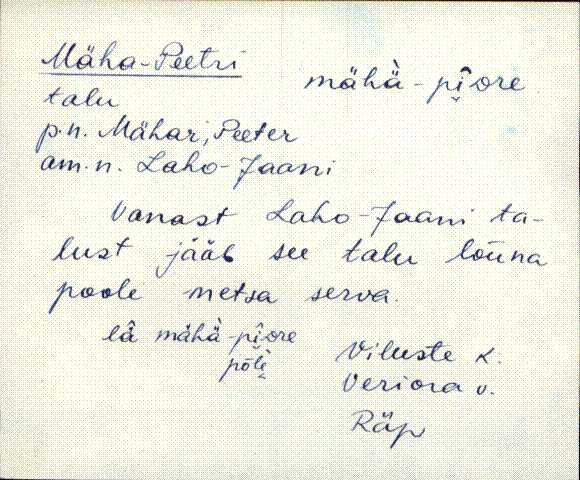 Mäha-Peetri
mähà - pî̭ɔre
talu
p.n. Mähar, Peeter
am.n. Laho-Jaani
Vanast Laho-Jaani ta-
lust jääb see talu lõuna
poole metsa serva.
lâ mähà-pî̭ɔre
põlè̬
Viluste k.
Veriora v.
Räp